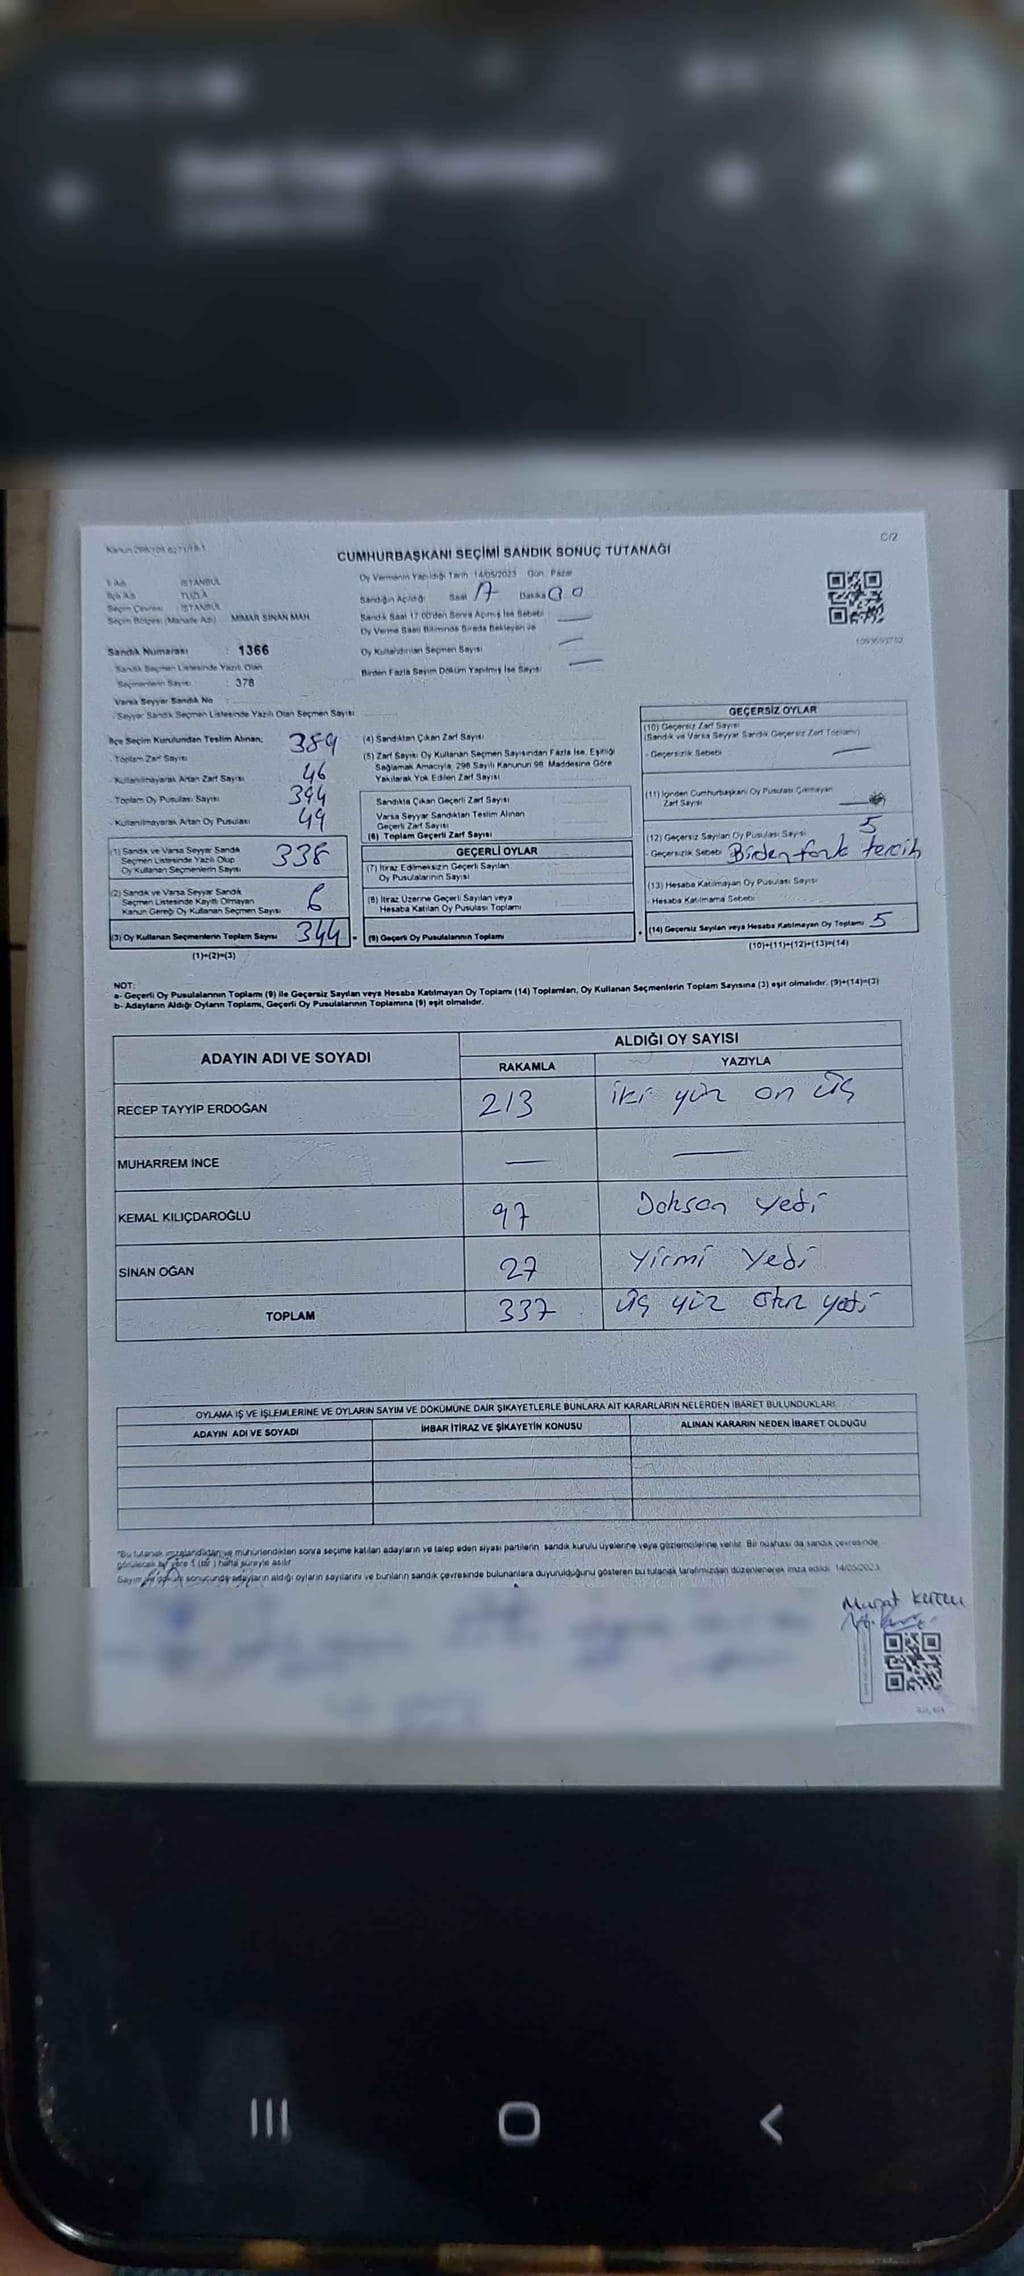 Kanun 298/105 6271/18-1
C/2
CUMHURBAŞKANI SEÇİMİ SANDIK SONUÇ TUTANAĞI
İl Adı : İSTANBUL
İlçe Adı : TUZLA
Seçim Çevresi : İSTANBUL
Seçim Bölgesi (Mahalle Adı) : MİMAR SİNAN MAH.
Sandık Numarası : 1366
Sandık Seçmen Listesinde Yazılı Olan
Seçmenlerin Sayısı : 378
Varsa Seyyar Sandık No :
- Seyyar Sandık Seçmen Listesinde Yazılı Olan Seçmen Sayısı
Oy Vermenin Yapıldığı Tarih :14/05/2023 Gün : Pazar
Sandığın Açıldığı Saat 17 Dakika 00
Sandık Saat 17:00'den Sonra Açılmış İse Sebebi : —
Oy Verme Saati Bitiminde Sırada Bekleyen ve
Oy Kullandırılan Seçmen Sayısı : —
Birden Fazla Sayım Döküm Yapılmış İse Sayısı : —
İlçe Seçim Kurulundan Teslim Alınan;
- Toplam Zarf Sayısı 389
- Kullanılmayarak Artan Zarf Sayısı 46
- Toplam Oy Pusulası Sayısı 394
- Kullanılmayarak Artan Oy Pusulası 49
(1) Sandık ve Varsa Seyyar Sandık
Seçmen Listesinde Yazılı Olup
Oy Kullanan Seçmenlerin Sayısı 338
(2) Sandık ve Varsa Seyyar Sandık
Seçmen Listesinde Kayıtlı Olmayan
Kanun Gereği Oy Kullanan Seçmen Sayısı 6
(3) Oy Kullanan Seçmenlerin Toplam Sayısı 344
(1)+(2)=(3)
(4) Sandıktan Çıkan Zarf Sayısı
(5) Zarf Sayısı Oy Kullanan Seçmen Sayısından Fazla İse, Eşitliği
Sağlamak Amacıyla, 298 Sayılı Kanunun 98. Maddesine Göre
Yakılarak Yok Edilen Zarf Sayısı
Sandıkta Çıkan Geçerli Zarf Sayısı
Varsa Seyyar Sandıktan Teslim Alınan
Geçerli Zarf Sayısı
(6) Toplam Geçerli Zarf Sayısı
GEÇERLİ OYLAR
(7) İtiraz Edilmeksizin Geçerli Sayılan
Oy Pusulalarının Sayısı
(8) İtiraz Üzerine Geçerli Sayılan veya
Hesaba Katılan Oy Pusulası Toplamı
(9) Geçerli Oy Pusulalarının Toplamı
GEÇERSİZ OYLAR
(10) Geçersiz Zarf Sayısı
(Sandık ve Varsa Seyyar Sandık Geçersiz Zarf Toplamı)
- Geçersizlik Sebebi —
(11) İçinden Cumhurbaşkanı Oy Pusulası Çıkmayan
Zarf Sayısı
(12) Geçersiz Sayılan Oy Pusulası Sayısı 5
- Geçersizlik Sebebi Birden fazla tercih
(13) Hesaba Katılmayan Oy Pusulası Sayısı
- Hesaba Katılmama Sebebi
(14) Geçersiz Sayılan veya Hesaba Katılmayan Oy Toplamı 5
(10)+(11)+(12)+(13)=(14)
NOT:
a- Geçerli Oy Pusulalarının Toplamı (9) ile Geçersiz Sayılan veya Hesaba Katılmayan Oy Toplamı (14) Toplamları, Oy Kullanan Seçmenlerin Toplam Sayısına (3) eşit olmalıdır. (9)+(14)=(3)
b- Adayların Aldığı Oyların Toplamı, Geçerli Oy Pusulalarının Toplamına (9) eşit olmalıdır.
ADAYIN ADI VE SOYADI ALDIĞI OY SAYISI
RAKAMLA YAZIYLA
RECEP TAYYİP ERDOĞAN 213 iki yüz on üç
MUHARREM İNCE — —
KEMAL KILIÇDAROĞLU 97 Doksan yedi
SİNAN OĞAN 27 Yirmi Yedi
TOPLAM 337 üç yüz otuz yedi
OYLAMA İŞ VE İŞLEMLERİNE VE OYLARIN SAYIM VE DÖKÜMÜNE DAİR ŞİKAYETLERLE BUNLARA AİT KARARLARIN NELERDEN İBARET BULUNDUKLARI
ADAYIN ADI VE SOYADI İHBAR İTİRAZ VE ŞİKAYETİN KONUSU ALINAN KARARIN NEDEN İBARET OLDUĞU
"Bu tutanak imzalandıktan ve mühürlendikten sonra seçime katılan adayların ve talep eden siyasi partilerin sandık kurulu üyelerine veya gözlemcilerine verilir. Bir nüshası da sandık çevresinde,
görülecek bir yere 1 (bir) hafta süreyle asılır.
Sayım ve döküm sonucunda adayların aldığı oyların sayılarını ve bunların sandık çevresinde bulunanlara duyurulduğunu gösteren bu tutanak tarafımızdan düzenlenerek imza edildi. 14/05/2023
Murat